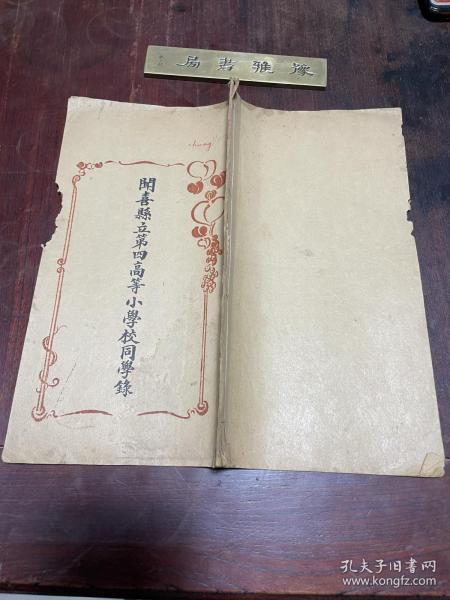 豫雅書局
chung
聞喜縣立第四高等小學校同學錄
孔夫子旧书网
www.kongfz.com